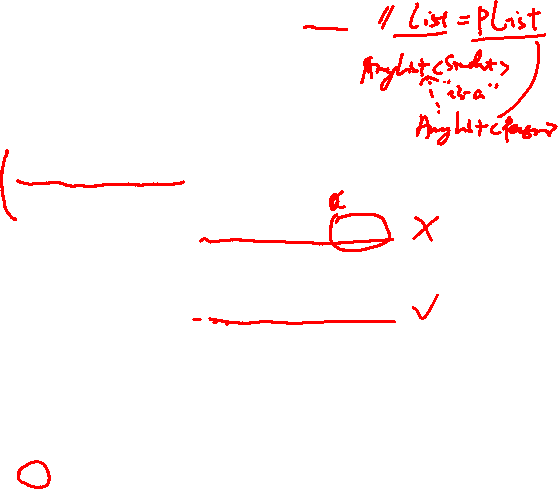 // List = PList
AnyList<Student>
"is a"
AnyList<Person>
α X
✓